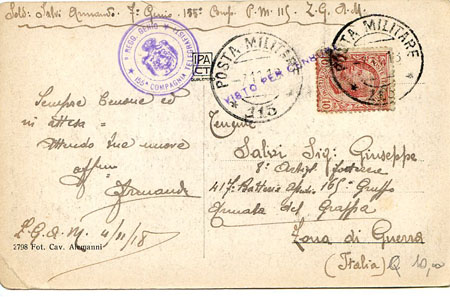 Sold: Salvi Armando 7º Genio - 155ª Comp. P.M. 115 Z.G.A.M.
REGG. GENIO
155ª COMPAGNIA
POSTA MILITARE
115
VISTO PER CENSURA
POSTA MILITARE
115
10
Sempre Benone ed
in attesa
attendo tue nuove
affmo
Armando
Z.G.A.M. 4/11/18
2798 Fot. Cav. Alemanni
Tenente
Salvi Sig: Giuseppe
8º Artigl. Fortezza
417ª Batteria 165º Gruppo
Armata del Grappa
Zona di Guerra
(Italia) Q 10,00